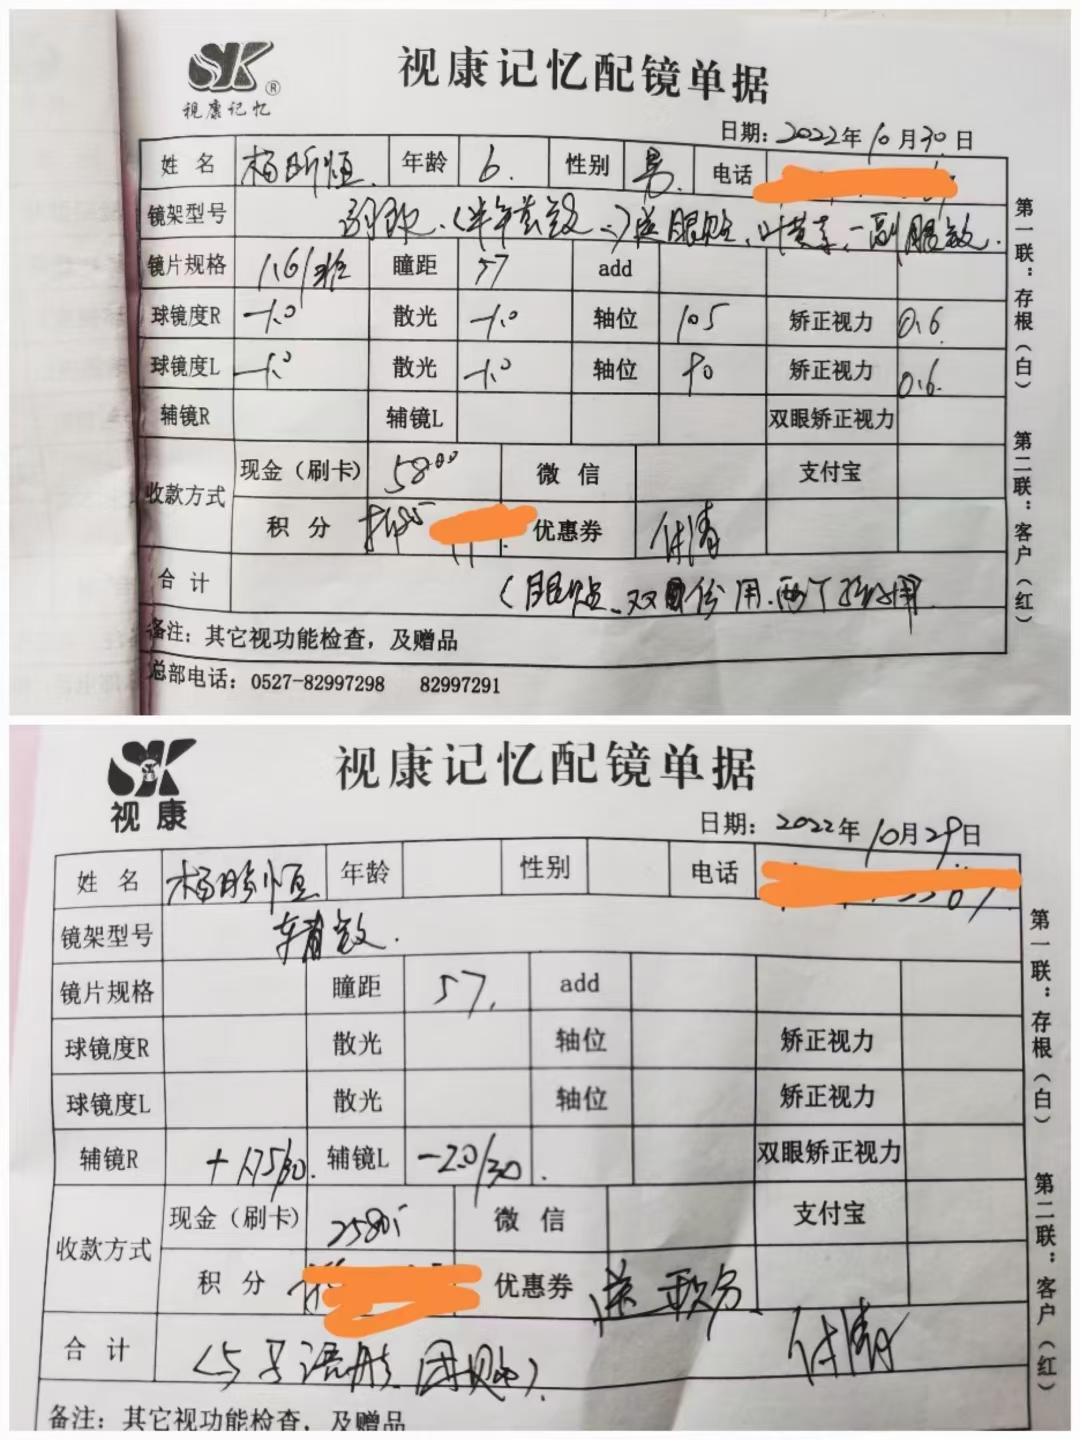 SK®
视康记忆
视康记忆配镜单据
日期：2022年10月30日
姓名 年龄 6. 性别 男. 电话
镜架型号
镜片规格 1.61 瞳距 57 add
球镜度R -1.0 散光 -1.0 轴位 105 矫正视力 0.6
球镜度L -1.0 散光 -1.0 轴位 90 矫正视力 0.6.
辅镜R 辅镜L 双眼矫正视力
收款方式 现金（刷卡） 58 微信 支付宝
积分 优惠券 付清
合计
备注：其它视功能检查，及赠品
总部电话：0527-82997298 82997291
第一联：存根（白） 第二联：客户（红）
SK
视康
视康记忆配镜单据
日期：2022年10月29日
姓名 年龄 性别 电话
镜架型号
镜片规格 瞳距 57. add
球镜度R 散光 轴位 矫正视力
球镜度L 散光 轴位 矫正视力
辅镜R +1.75/30. 辅镜L -2.0/30. 双眼矫正视力
收款方式 现金（刷卡） 2580 微信 支付宝
积分 优惠券 送 积分 付清
合计
备注：其它视功能检查，及赠品
第一联：存根（白） 第二联：客户（红）